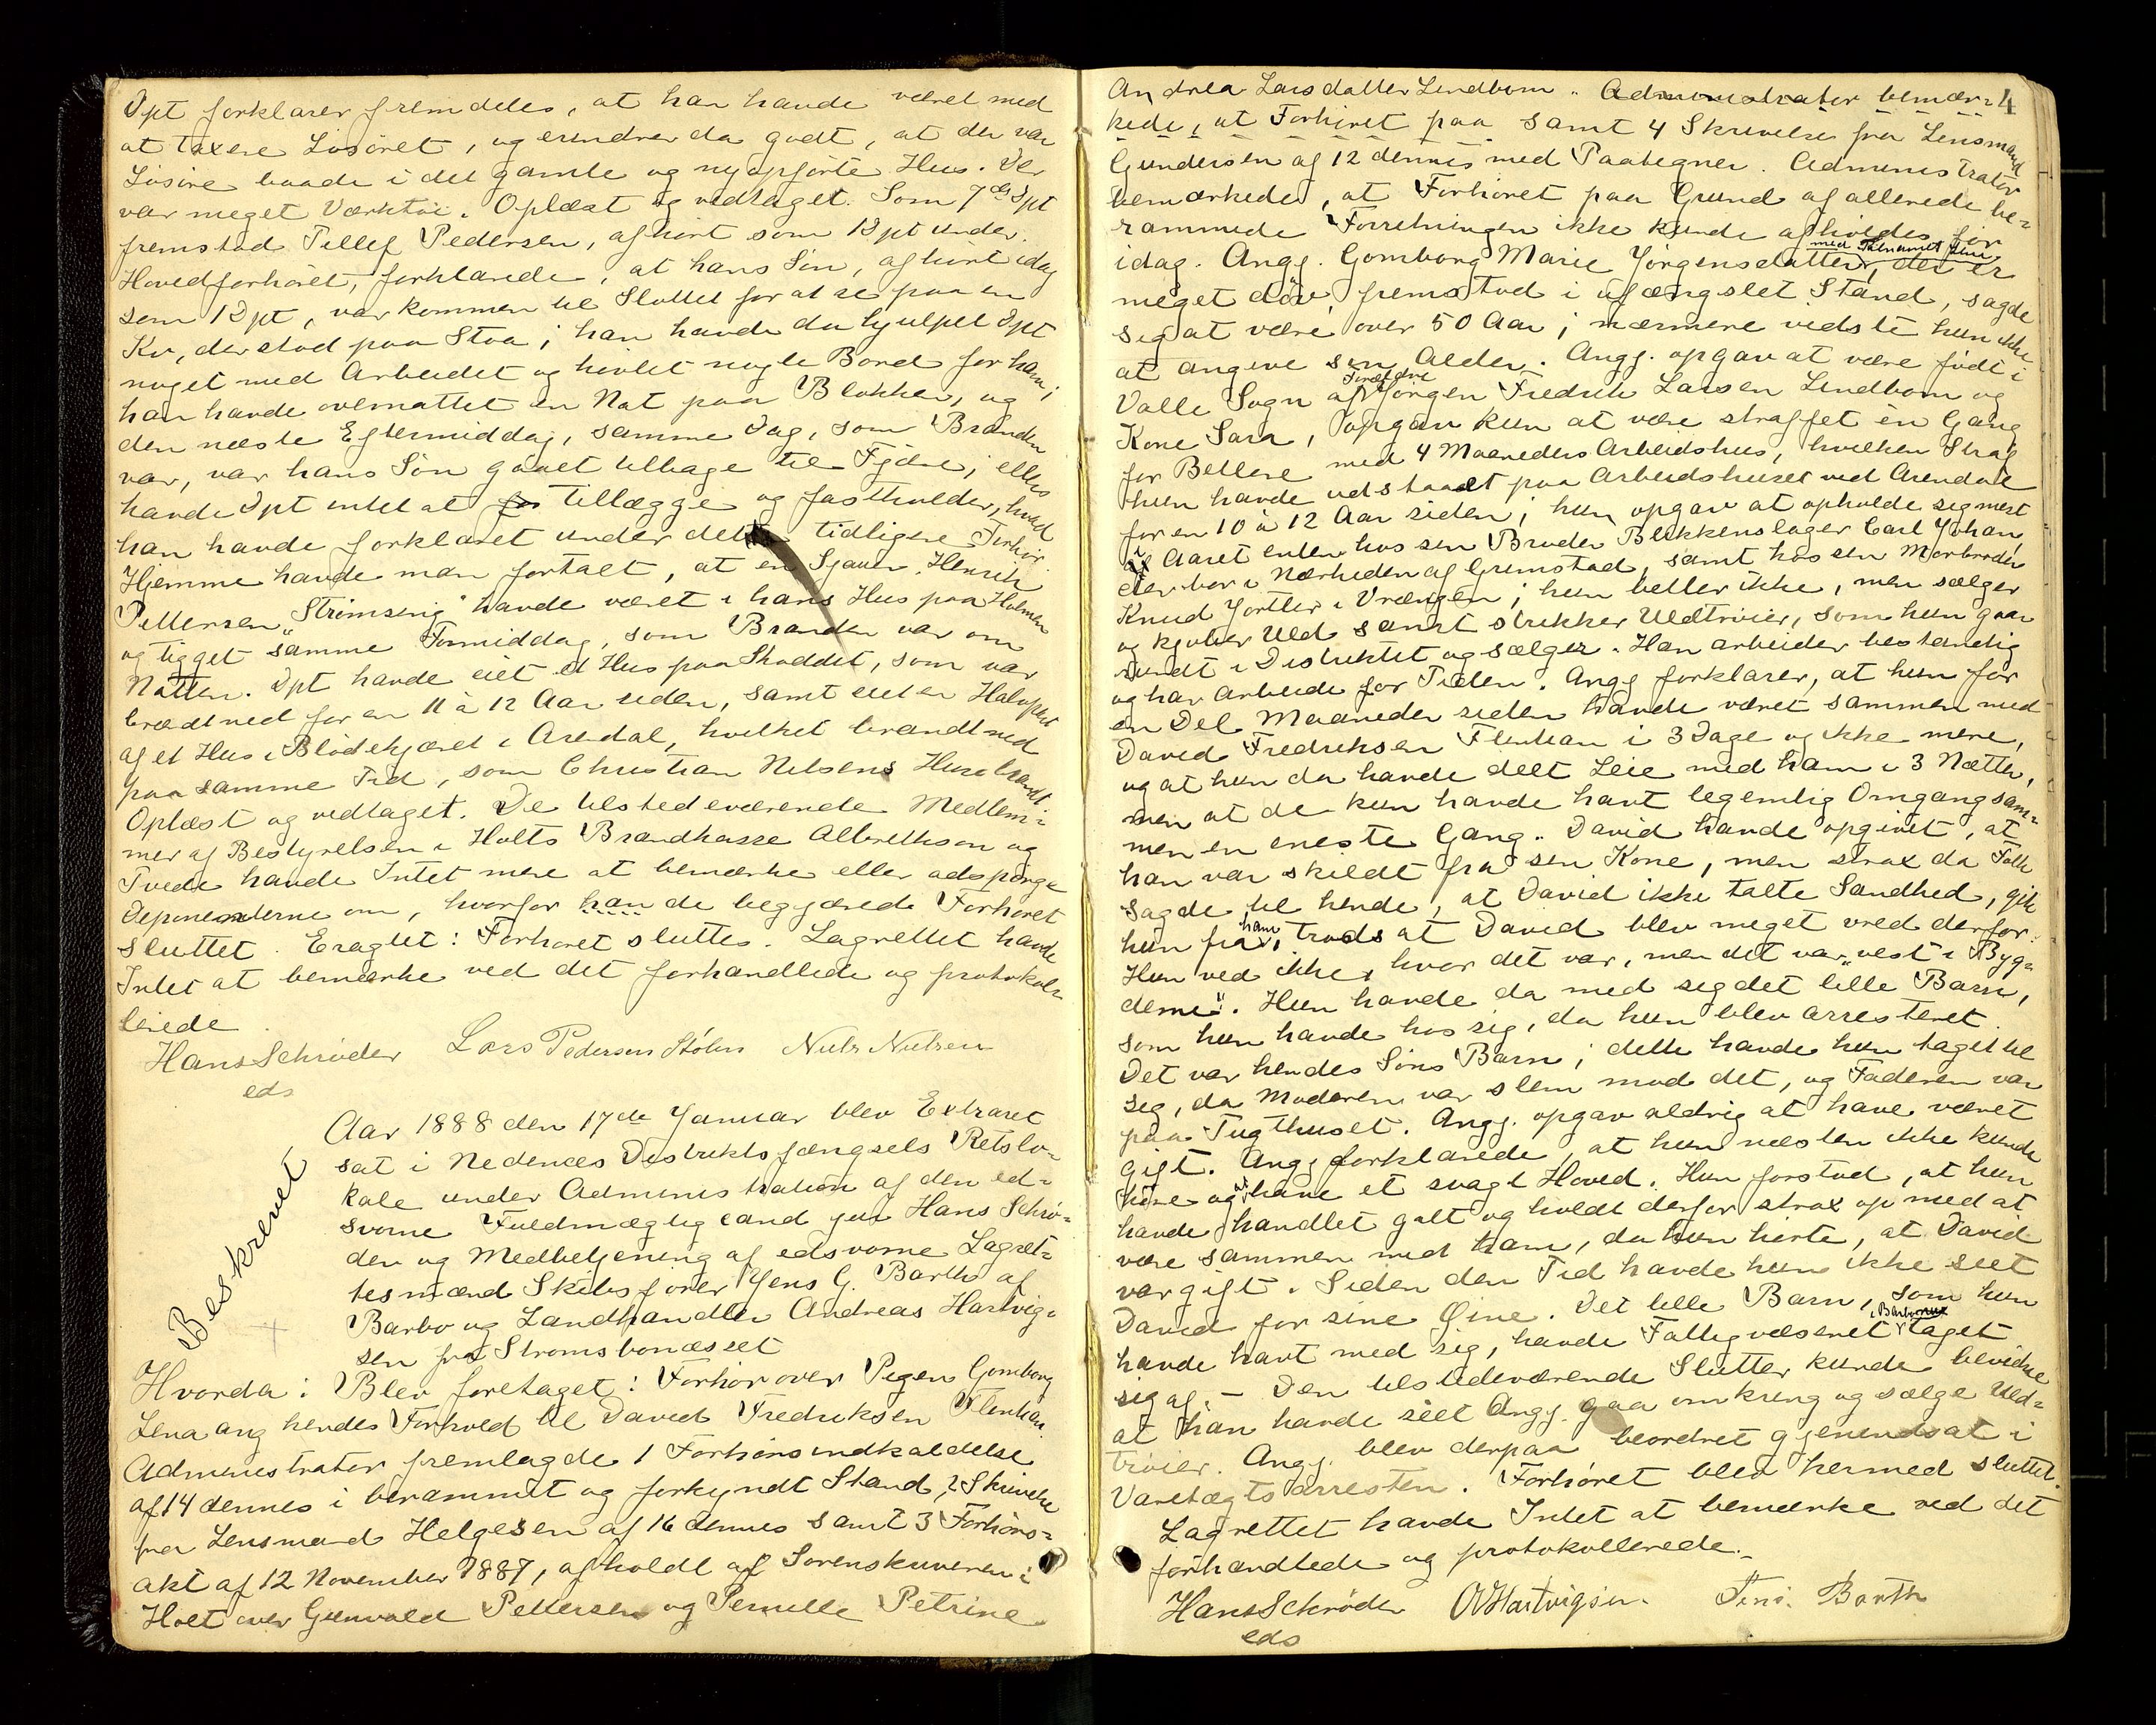 Dpt forklarer fremdeles, at han havde været med
at taxere Løsøret, og erindrer da godt, at der var
Løsøre baade i det gamle og nyopførte Hus. Der
var meget Værktøi. Oplæst og vedtaget. Som 7de Dpt
fremstod Tellef Pedersen, afhørt som 12 Dpt under
Hovedforhøret, forklarede, at hans Søn, afhørt idag
som 1 Dpt, var kommen til Slottet for at se paa en
Ko, der stod paa Stoa; han havde da hjulpet Dpt
noget med Arbeidet og høvlet nogle Bord for ham;
han havde overnattet en Nat paa Blokken, og
den næste Eftermiddag, samme Dag, som Branden
var, var hans Søn gaaet tilbage til Fjære; ellers
havde Dpt intet at tillægge og fastholder, hvad
han havde forklaret under det tidligere Forhør.
Hjemme havde man fortalt, at en Sjauer Henrik
Pettersen "Strømseng" havde været i hans Hus paa Holmen
og tigget samme Formiddag, som Branden var om
Natten. Dpt havde eiet et Hus paa Skoddet, som var
brændt ned for en 11 à 12 Aar siden, samt eiet en Halvpart
af et Hus i Blødekjæret i Arendal, hvilket brændt ned
paa samme Tid, som Christian Nilsens Huse brændt.
Oplæst og vedtaget. De tilstedeværende Medlem=
mer af Bestyrelsen i Holts Brandkasse Albrethson og
Tvede havde Intet mere at bemærke eller adspørge
Deponenterne om, hvorfor han de begjærede Forhøret
sluttet. Eragtet: Forhøret sluttes. Lagrettet havde
Intet at bemærke ved det forhandlede og protokol=
lerede.
Hans Schrøder Lars Pedersen Stølen Niels Nielsen
eds
Beskrevet
Aar 1888 den 17de Januar blev Extraret
sat i Nedenæs Distriktsfængsels Retslo=
kale under Administration af den ed=
svorne Fuldmægtig cand jur Hans Schrø=
der og Medbetjening af edsvorne Lagret=
tesmænd Skibsfører Jens G. Barth af
Barbo og Landhandler Andreas Hartvig=
sen fra Strømsbonæsset
Hvorda: Blev foretaget: Forhør over Pigen Gomborg
Lena ang hendes Forhold til David Fredriksen Flenhan.
Administrator fremlagde 1 Forhørsindkaldelse
af 14 dennes i berammet og forkyndt Stand, 2 Skrivelse
fra Lensmand Helgesen af 16 dennes samt 3 Forhørs=
akt af 12 November 1887, afholdt af Sorenskriveren i
Holt over Gunvald Pettersen og Pernille Petrine
4
Andrea Larsdatter Lindbom. Administrator bemær=
kede, at Forhøret paa samt 4 Skrivelse fra Lensmand
Gundersen af 12 dennes med Paategner. Administrator
bemærkede, at Forhøret paa Grund af allerede be=
rammede Forretningen ikke kunde afholdes før
idag. Angj. Gomborg Marie Jørgensdatter, der er
meget døv, fremstod i ufængslet Stand, sagde
sig at være over 50 Aar; nærmere vidste hun ikke
at angive sin Alder. Angj. opgav at være født i
Valle Sogn af Forældre Jørgen Fredrik Larsen Lindbom og
Kone Sara, opgav kun at være straffet én Gang
for Betleri med 4 Maaneders Arbeidshus, hvilken Straf
hun havde udstaaet paa Arbeidshuset ved Arendal
for en 10 à 12 Aar siden; hun opgav at opholde sig mest
i Aaret enten hos sin Broder Blikkenslager Carl Johan,
der bor i Nærheden af Grimstad, samt hos sin Morbroder
Knud Jortler i Vrængen; hun betler ikke, men sælger
og kjøber Uld samt strikker Uldtrøier, som hun gaar
rundt i Distriktet og sælger. Han arbeider bestandig
og har Arbeide for Tiden. Angj forklarer, at hun for
en Del Maaneder siden havde været sammen med
David Fredriksen Flenhan i 3 Dage og ikke mere,
og at hun da havde delt Leie med ham i 3 Nætter,
men at de kun havde havt legemlig Omgang sam=
men en eneste Gang. David havde opgivet, at
han var skildt fra sin Kone, men strax da Folk
sagde til hende, at David ikke talte Sandhed, gik
hun fra ham, trods at David blev meget vred derfor.
Hun ved ikke, hvor det var, men det var "vest i Byg=
derne". Hun havde da med sig det lille Barn,
som hun havde hos sig, da hun blev arresteret.
Det var hendes Søns Barn; dette havde hun taget til
sig, da Moderen var slem mod det, og Faderen var
paa Tugthuset. Angj. opgav aldrig at have været
gift. Angj forklarede, at hun næsten ikke kunde
høre og at have et svagt Hoved. Hun forstod, at hun
havde handlet galt og holdt derfor strax op med at
være sammen med ham, da hun hørte, at David
var gift. Siden den Tid havde hun ikke seet
David for sine Øine. Det lille Barn, som hun
havde havt med sig, havde Fattigvæsenet i Barbo taget
sig af. – Den tilstedeværende Slutter kunde bevidne
at han havde seet Angj. gaa omkring og sælge Uld=
trøier. Angj. blev derpaa beordret gjenindsat i
Varetægtsarresten. Forhøret blev hermed sluttet.
Lagrettet havde Intet at bemærke ved det
forhandlede og protokollerede.
Hans Schrøder Hartvigsen. Jens. Barth
eds